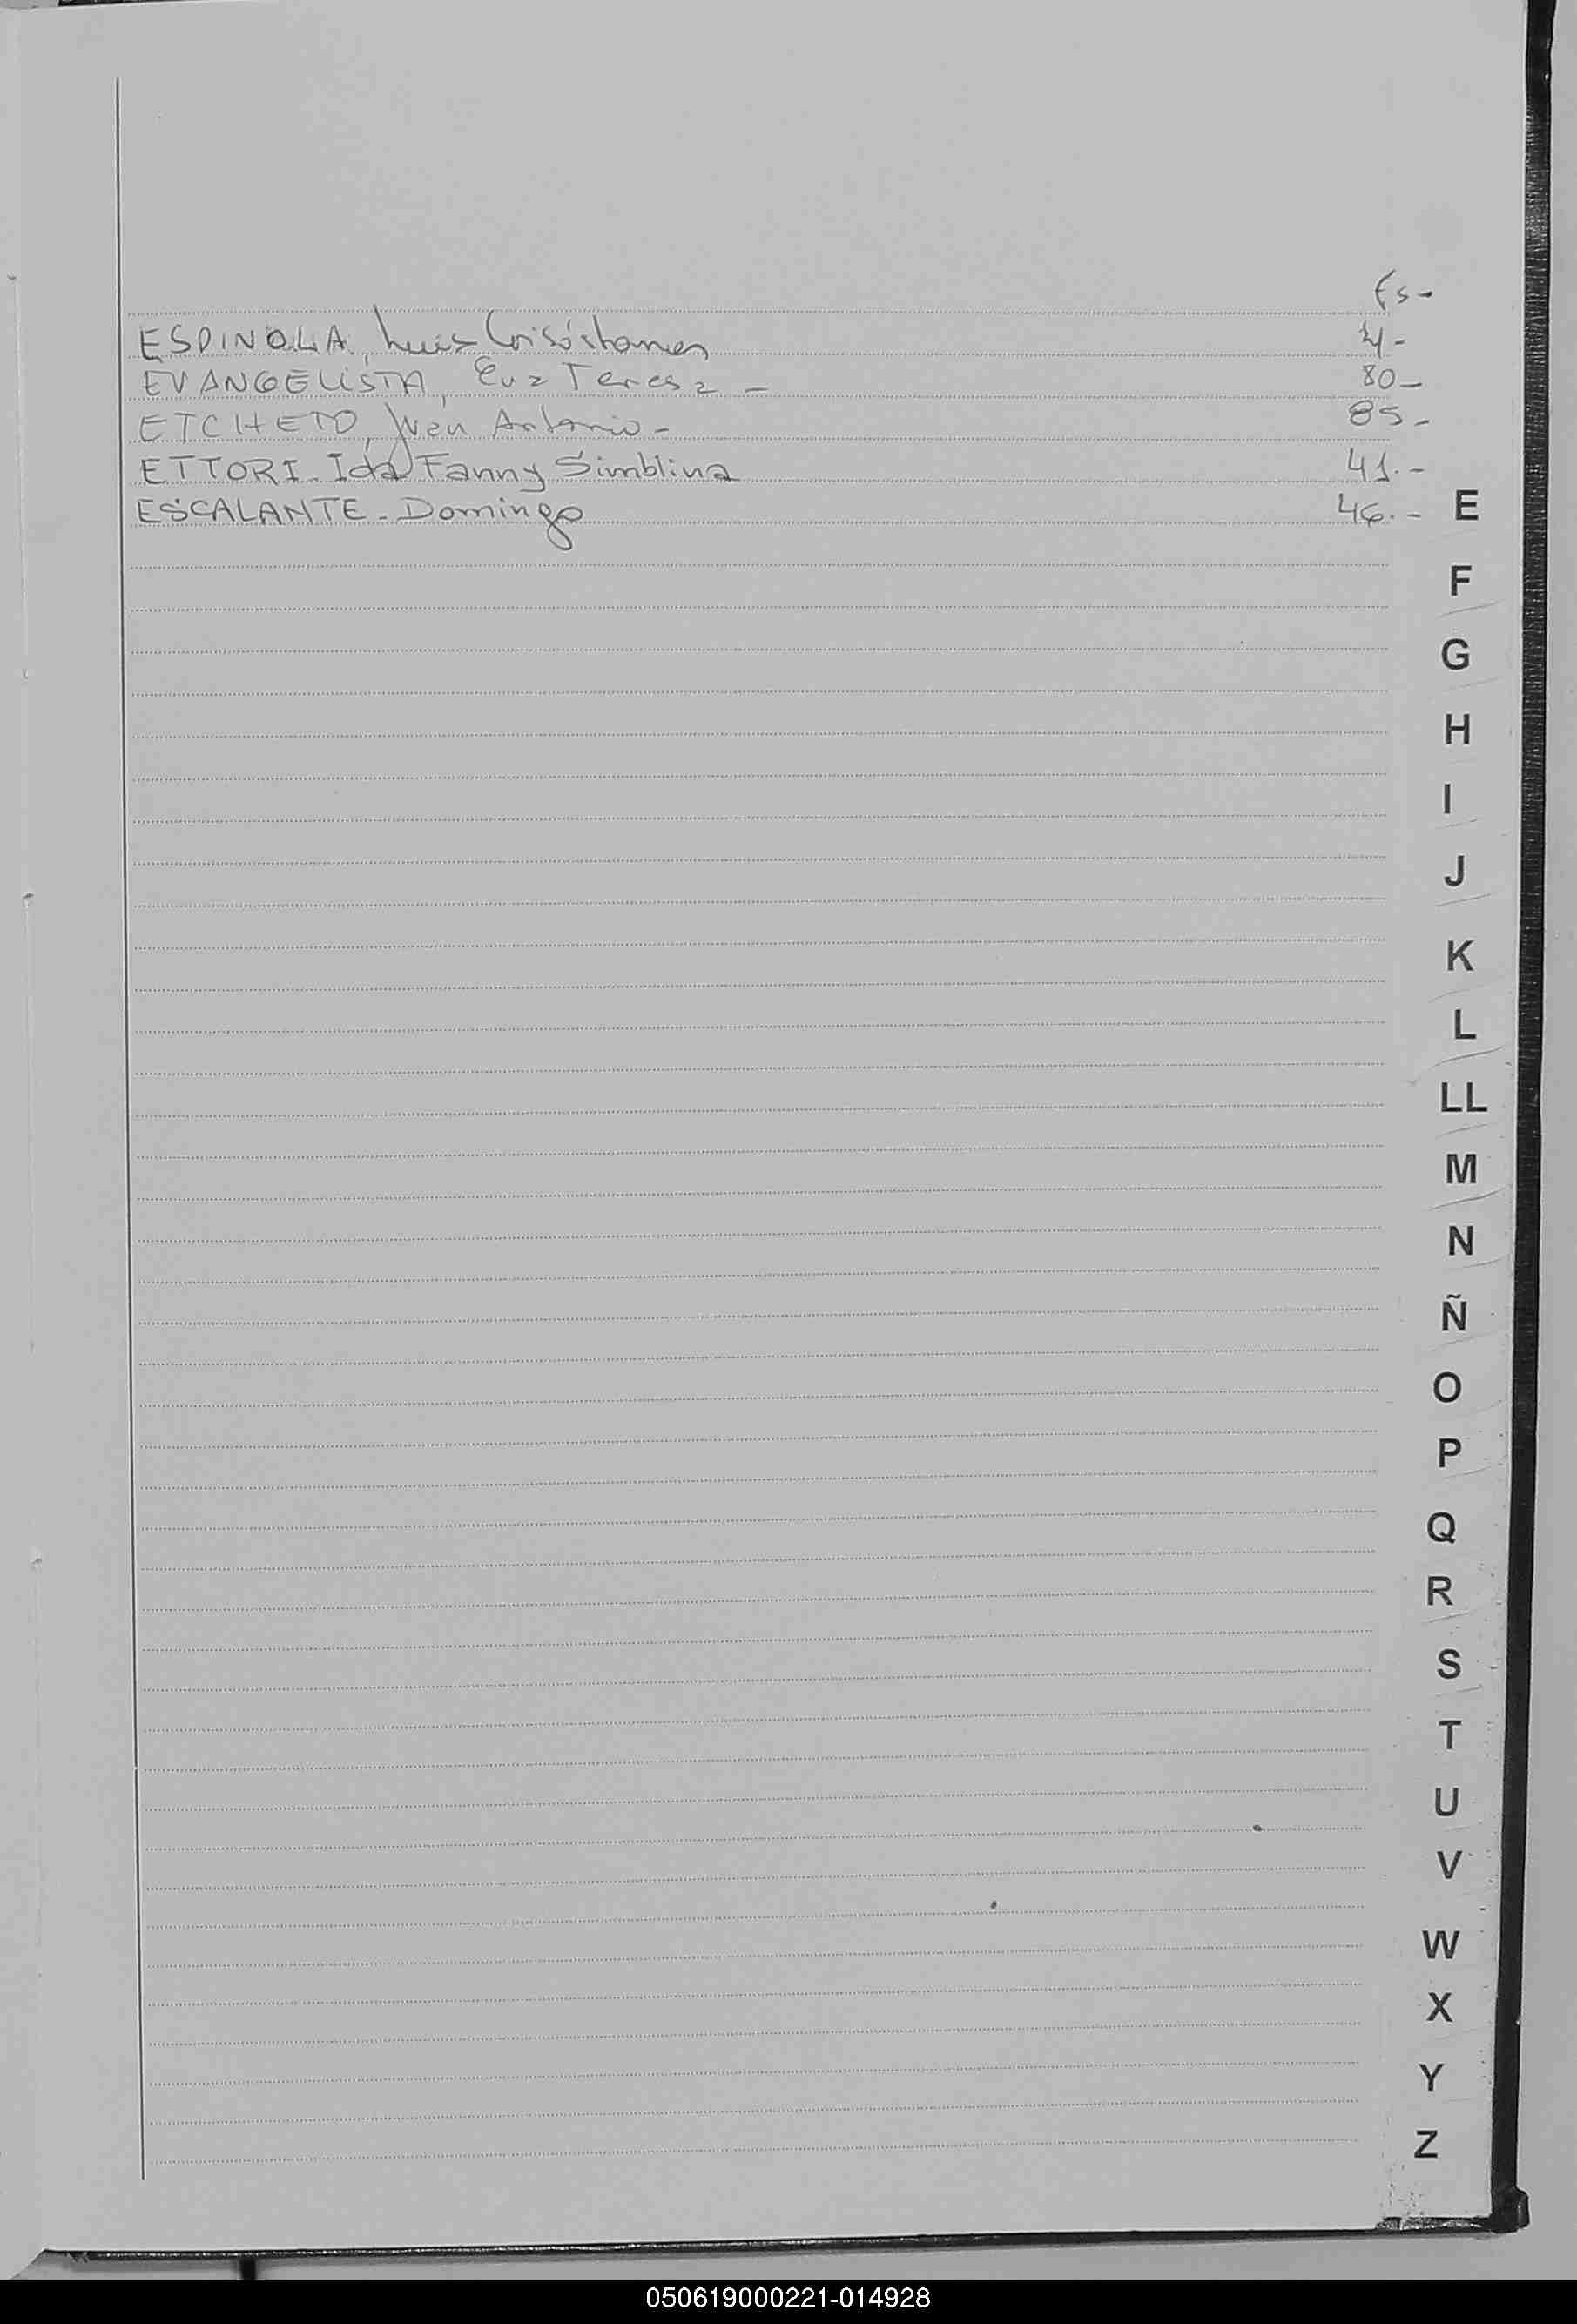 Fs-
ESPINOLA, Luis Crisóstomo
EVANGELISTA, Eva Teresa - 80-
ETCHETO, Juan Antonio - 85-
ETTORI. Ida Fanny Simblina 41.-
ESCALANTE. Domingo 46.-
E
F
G
H
I
J
K
L
LL
M
N
Ñ
O
P
Q
R
S
T
U
V
W
X
Y
Z
050619000221-014928